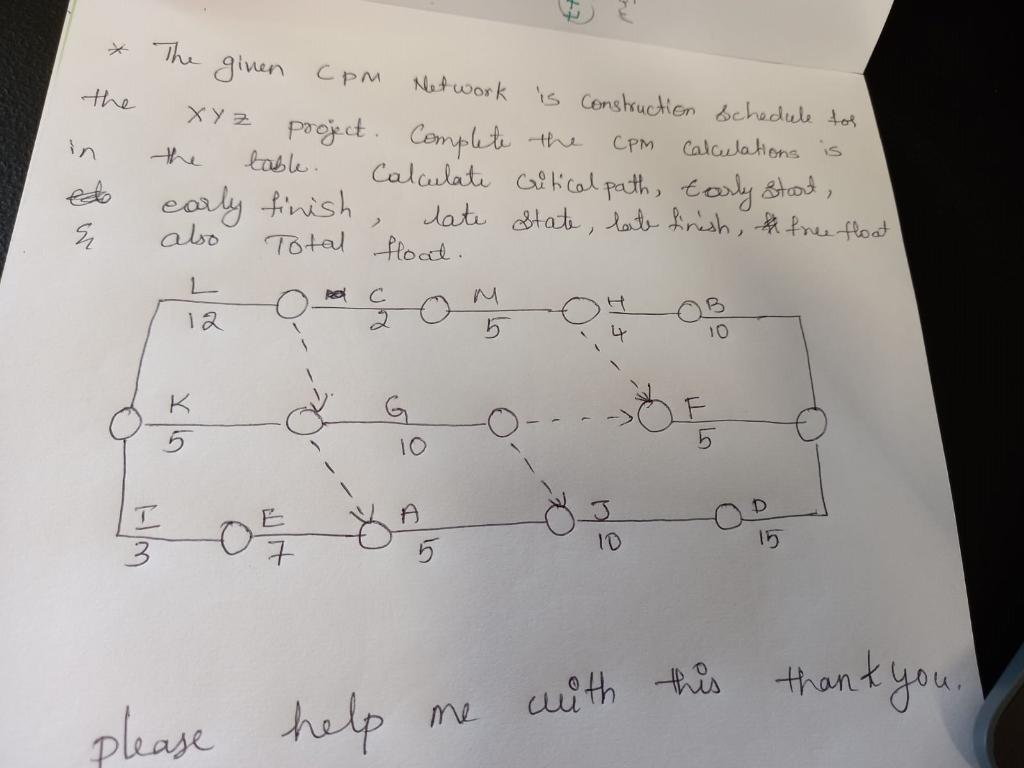 * The given CPM Network is construction schedule for
the XYZ project. Complete the CPM Calculations is
in the table. Calculate Critical path, Early Start,
early finish, late State, late finish, free float
& also Total float.
L C M H B
12 2 5 4 10
K G F
5 10 5
I E A J D
3 7 5 10 15
please help me with this thank you.